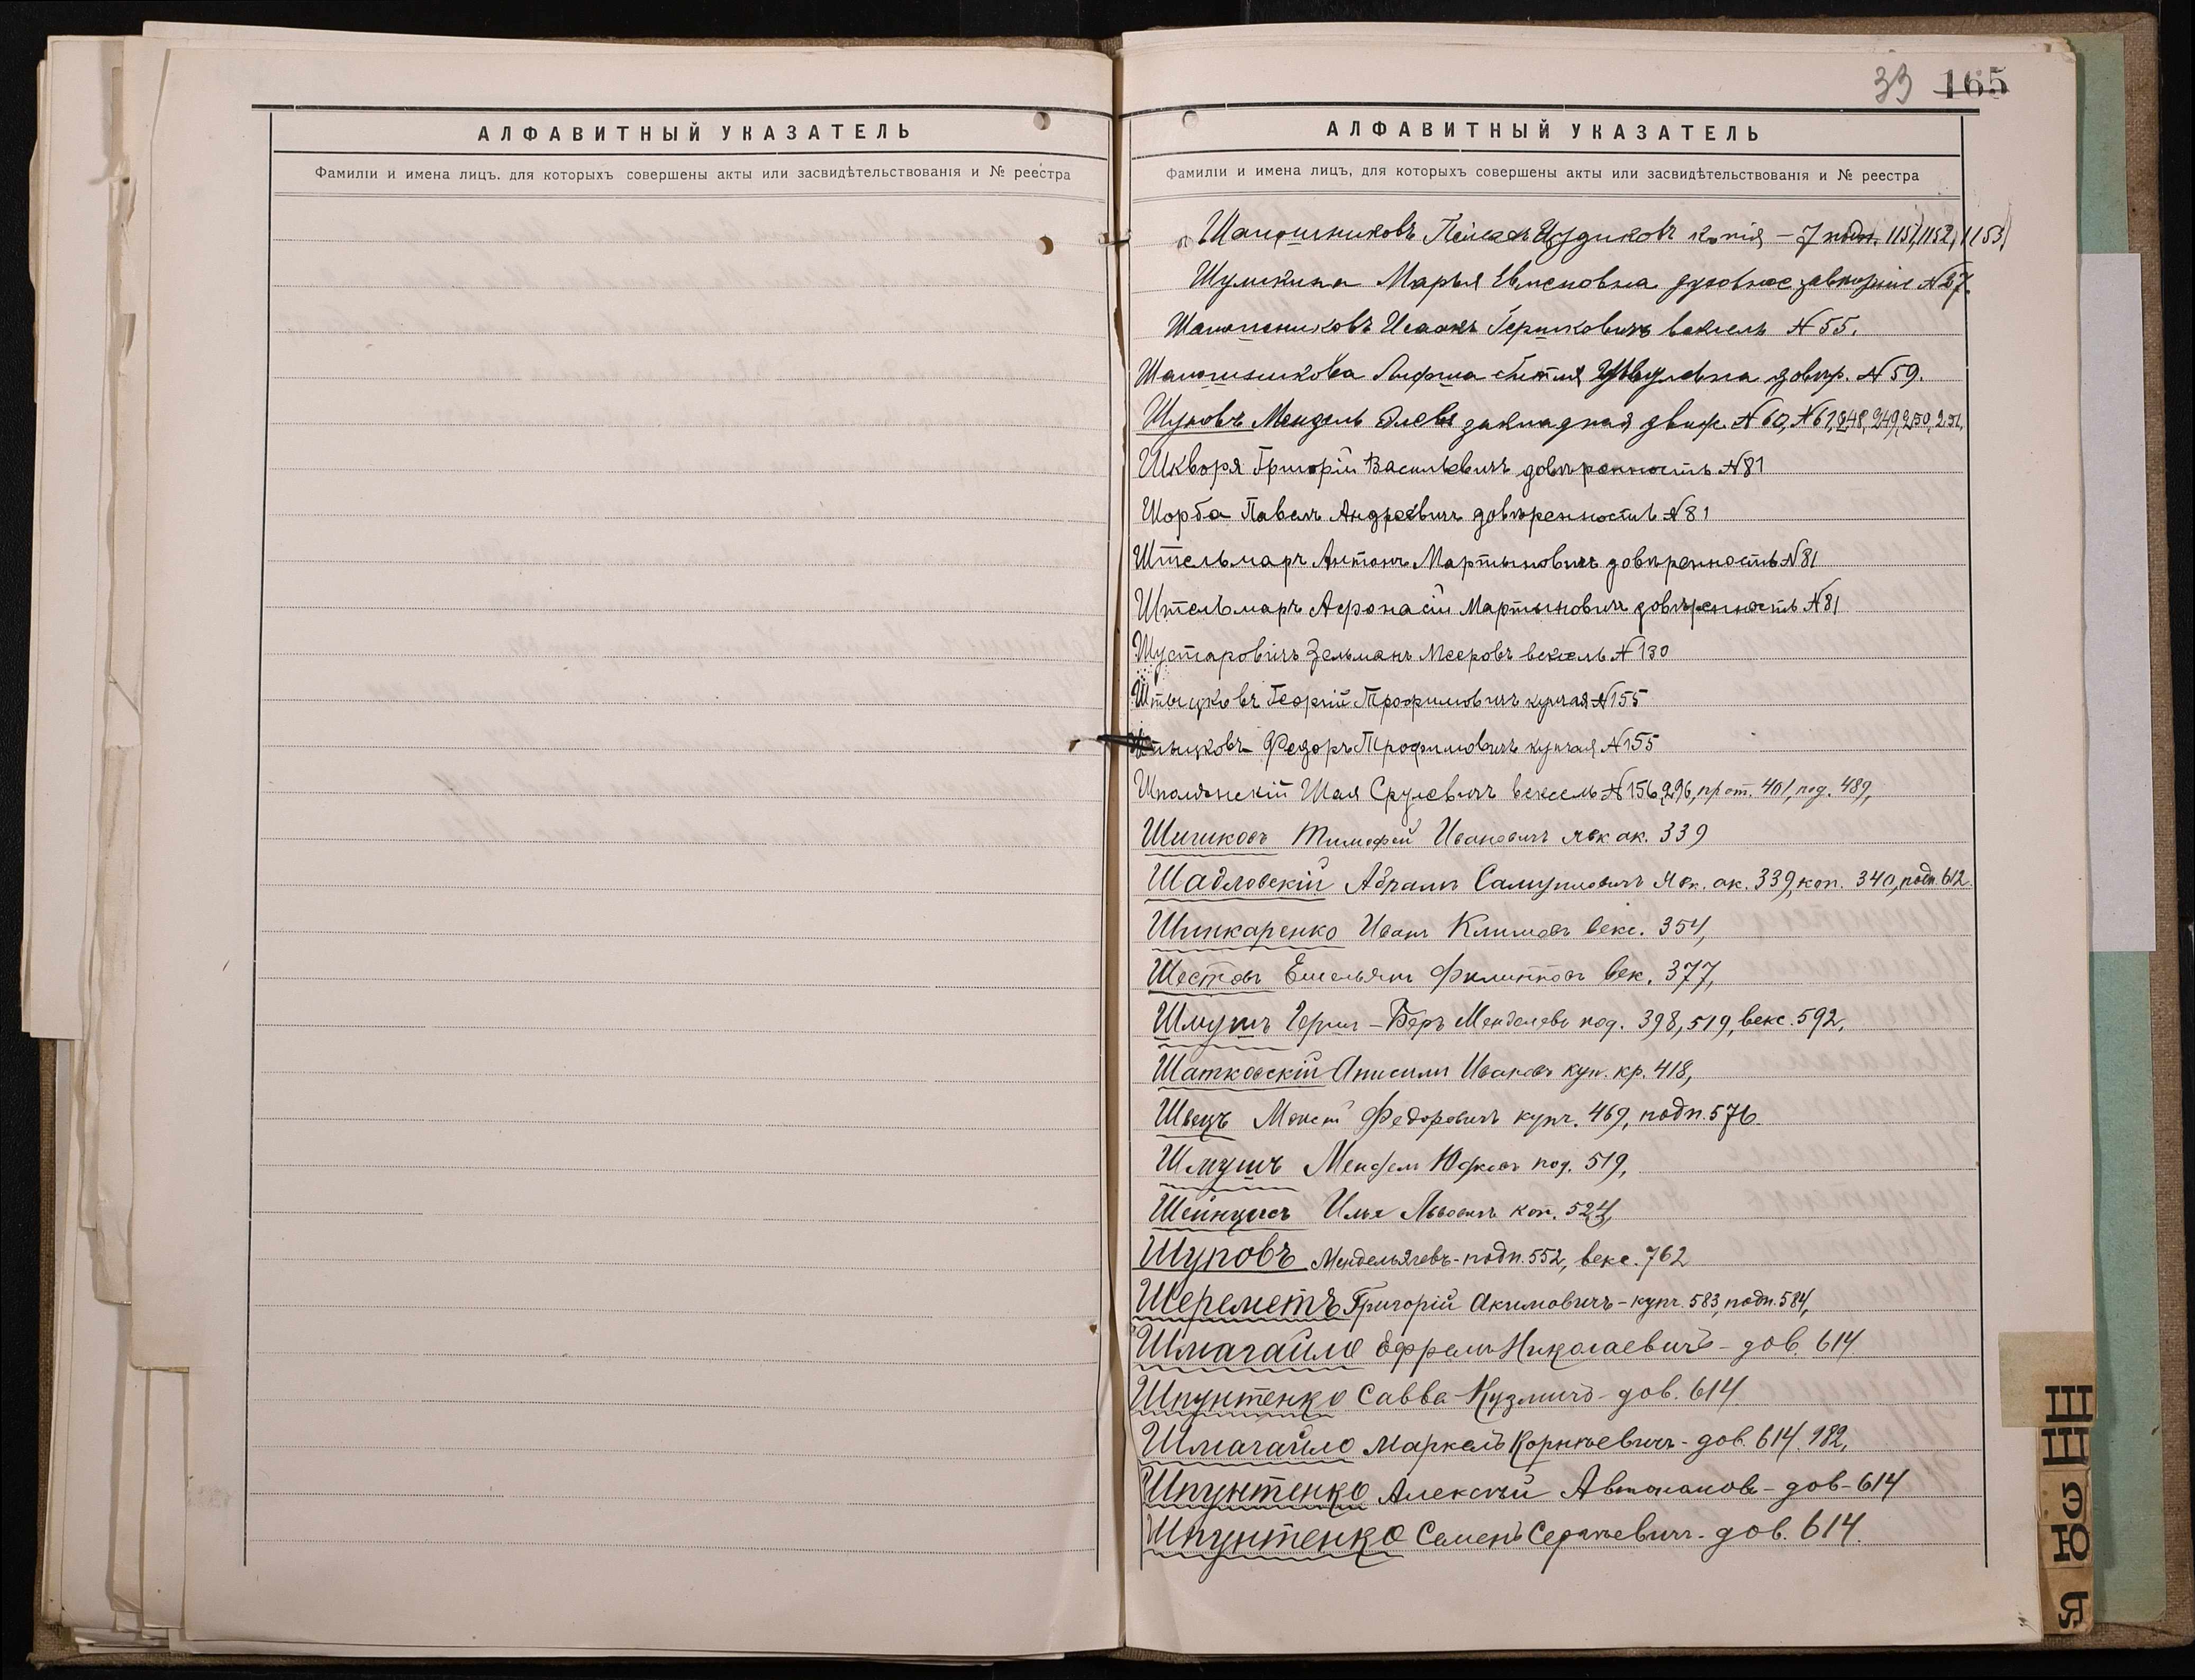 33 165
АЛФАВИТНЫЙ УКАЗАТЕЛЬ
Фамиліи и имена лицъ. для которыхъ совершены акты или засвидѣтельствованія и № реестра
АЛФАВИТНЫЙ УКАЗАТЕЛЬ
Фамиліи и имена лицъ, для которыхъ совершены акты или засвидѣтельствованія и № реестра
Шапошниковъ копія - 7 подп. 1151, 1152, 1153,
Марья духовное завѣщаніе №27.
Шапошниковъ Исаакъ Гершковичъ вексель №55.
Шапошникова довѣр. №59.
Шуповъ Мендель закладная движ. №60, №61, 248, 249, 250, 251,
Шкворя Григорій Васильевичъ довѣренность №81
Шорба Павелъ Андреевичъ довѣренность №81
Штельмаръ Антонъ Мартыновичъ довѣренность №81
Штельмаръ Афонасій Мартыновичъ довѣренность №81
Шустаровичъ Зельманъ Мееровъ вексель №130
Штыцковъ Георгій Трофимовичъ купчая №155
Штыцковъ Федоръ Трофимовичъ купчая №155
Шполянскій Шая Срулевичъ вексель №156, 296, прот. 401, под. 489,
Шишковъ Тимофей Ивановичъ явк ак. 339
Шадловскій Абрамъ Самуиловичъ явк. ак. 339, коп. 340, подп. 612
Шинкаренко Иванъ Климовъ векс. 354,
Шестовъ Емельянъ Филипповъ век. 377,
Шмушъ Герш-Беръ Менделевъ под. 398, 519, векс. 592,
Шатковскій Анисимъ Ивановъ куп. кр. 418,
Швецъ Моисей Федоровичъ купч. 469, подп. 576.
Шмушъ Мендель под. 519,
Шейнцисъ Илья Львовичъ коп. 524,
Шуповъ Мендель - подп. 552, векс. 762
Шереметъ Григорій Акимовичъ - купч. 583, подп. 584,
Шмагайло Ефремъ Николаевичъ - дов. 614
Шпунтенко Савва Кузмичъ - дов. 614
Шмагайло Маркелъ Корнѣевичъ - дов. 614. 982,
Шпунтенко Алексѣй Автономовъ - дов - 614
Шпунтенко Семенъ Сергѣевичъ - дов. 614.
Ш
Щ
Э
Ю
Я